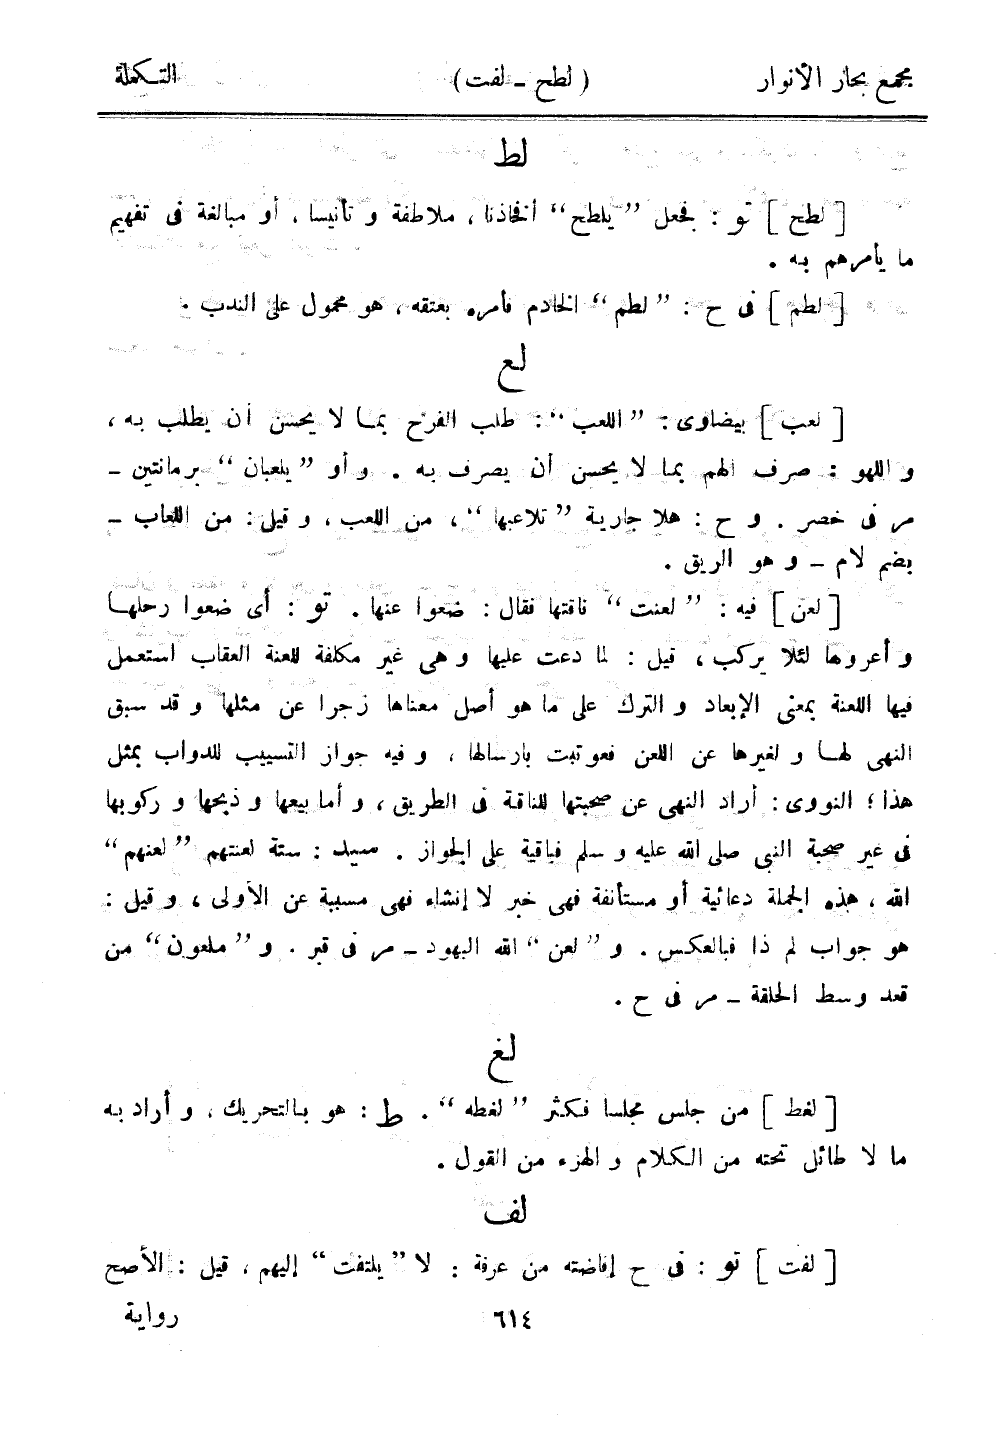 مجمع بحار الأنوار ( لطح – لفت ) التكملة
لط
[ لطح ] تو : فجعل ”يلطح“ أفخاذنا ، ملاطفة و تأنيسا ، أو مبالغة فى تفهيم
ما يأمرهم به .
[ لطم ] فى ح : ”لطم“ الخادم فأمره بعتقه ، هو محمول على الندب .
لع
[ لعب ] بيضاوى : ”اللعب“ : طلب الفرح بما لا يحسن أن يطلب به ،
و اللهو : صرف الهم بما لا يحسن أن يصرف به . و أو ”يلعبان“ برمانتين –
مر فى خصر . و ح : هلا جارية ”تلاعبها“ ، من اللعب ، و قيل : من اللعاب –
بضم لام – و هو الريق .
[ لعن ] فيه : ”لعنت“ ناقتها فقال : ضعوا عنها . تو : أى ضعوا رحلها
و أعروها لئلا يركب ، قيل : لما دعت عليها و هى غير مكلفة للعنة العقاب استعمل
فيها اللعنة بمعنى الإبعاد و الترك على ما هو أصل معناها زجرا عن مثلها و قد سبق
النهى لها و لغيرها عن اللعن فعوتبت بارسالها ، و فيه جواز التسييب للدواب بمثل
هذا ؛ النووى : أراد النهى عن صحبتها للناقة فى الطريق ، و أما بيعها و ذبحها و ركوبها
فى غير صحبة النبى صلى الله عليه و سلم فباقية على الجواز . سيد : ستة لعنتهم ”لعنهم“
الله ، هذه الجملة دعائية أو مستأنفة فهى خبر لا إنشاء فهى مسببة عن الأولى ، و قيل :
هو جواب لم ذا فبالعكس . و ”لعن“ الله اليهود – مر فى قبر . و ”ملعون“ من
قعد وسط الحلقة – مر فى ح .
لغ
[ لغط ] من جلس مجلسا فكثر ”لغطه“ . ط : هو بالتحريك ، و أراد به
ما لا طائل تحته من الكلام و الهزء من القول .
لف
[ لفت ] تو : فى ح إفاضته من عرفة : لا ”يلتفت“ إليهم ، قيل : الأصح
٦١٤ رواية